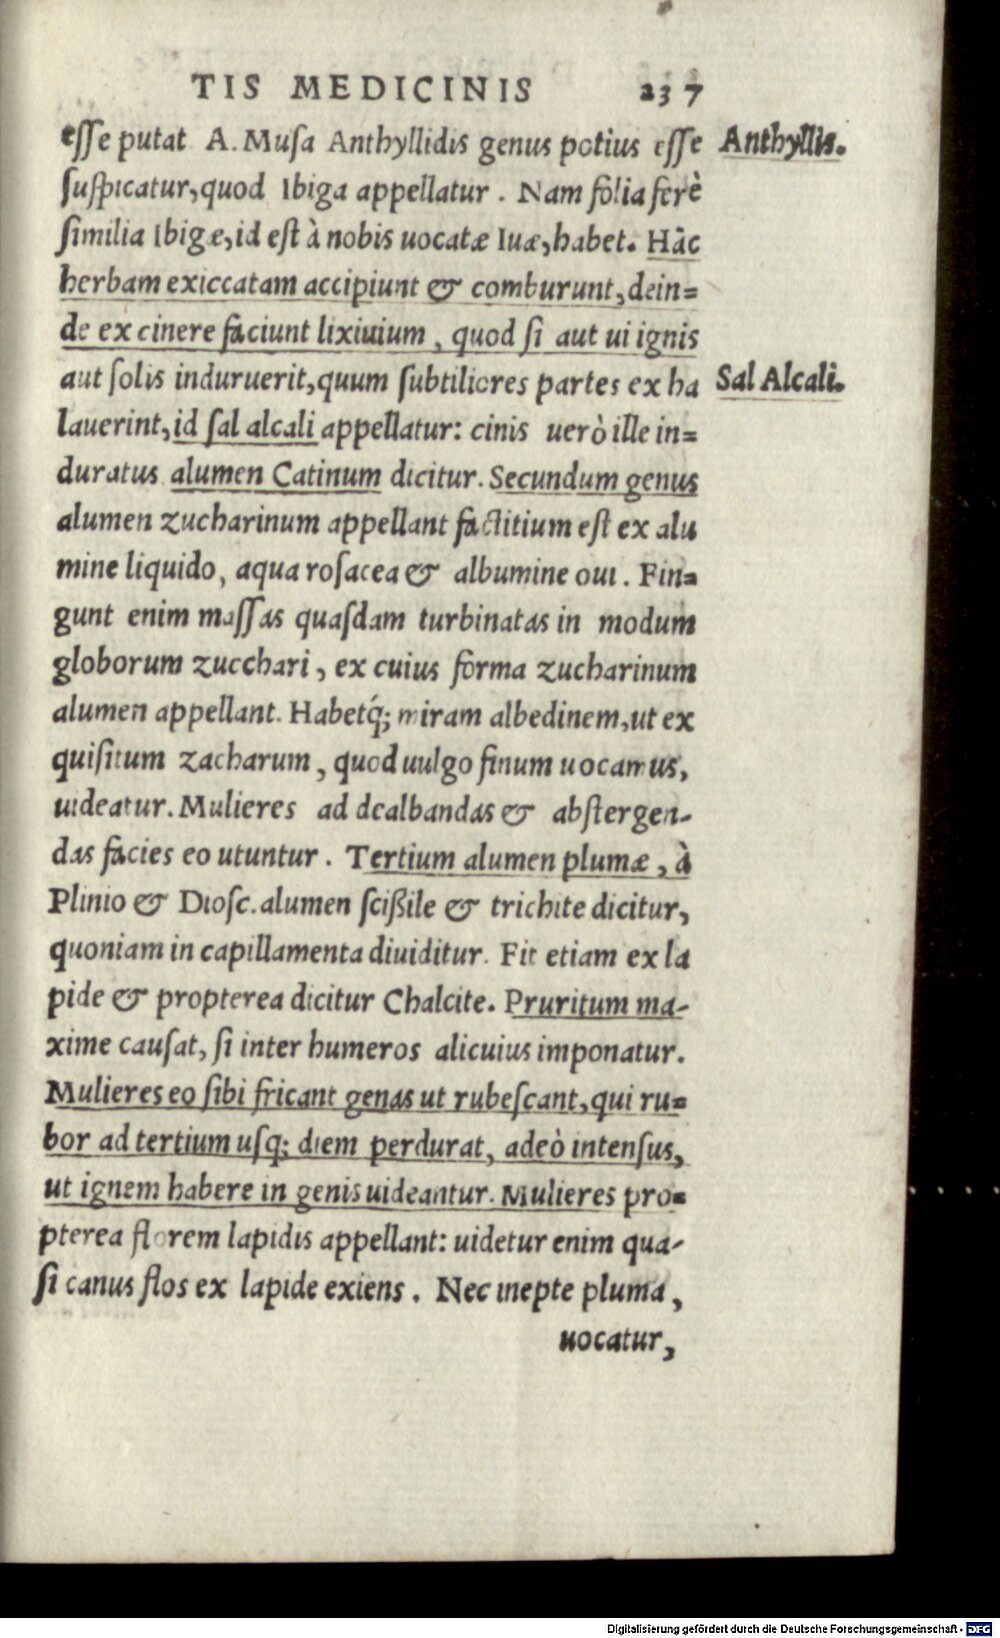 TIS MEDICINIS 237
esse putat A. Musa Anthyllidis genus potius esse Anthyllis.
suspicatur, quod Ibiga appellatur. Nam folia ferè
similia Ibigæ, id est à nobis uocatæ Iuæ, habet. Hāc
herbam exiccatam accipiunt & comburunt, dein=
de ex cinere faciunt lixiuium, quod si aut ui ignis
aut solis induruerit, quum subtiliores partes ex ha Sal Alcali.
lauerint, id sal alcali appellatur: cinis uerò ille in=
duratus alumen Catinum dicitur. Secundum genus
alumen zucharinum appellant factitium est ex alu
mine liquido, aqua rosacea & albumine oui. Fin=
gunt enim massas quasdam turbinatas in modum
globorum zucchari, ex cuius forma zucharinum
alumen appellant. Habetq́; miram albedinem, ut ex
quisitum zacharum, quod uulgo finum uocamus,
uideatur. Mulieres ad dealbandas & abstergen-
das facies eo utuntur. Tertium alumen plumæ, à
Plinio & Diosc. alumen scißile & trichite dicitur,
quoniam in capillamenta diuiditur. Fit etiam ex la
pide & propterea dicitur Chalcite. Pruritum ma-
xime causat, si inter humeros alicuius imponatur.
Mulieres eo sibi fricant genas ut rubescant, qui ru=
bor ad tertium usq; diem perdurat, adeò intensus,
ut ignem habere in genis uideantur. Mulieres pro=
pterea florem lapidis appellant: uidetur enim qua-
si canus flos ex lapide exiens. Nec inepte pluma,
uocatur,
Digitalisierung gefördert durch die Deutsche Forschungsgemeinschaft - DFG